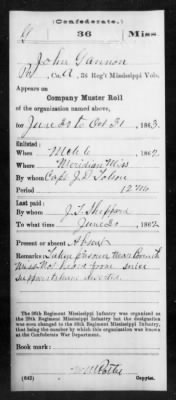 (Confederate.)
G 36 Miss
John Gannon
Pvt., Co. A, 36 Reg't Mississippi Vols.
Appears on
Company Muster Roll
of the organization named above,
for June 30 to Oct 31, 1863.
Enlisted:
When , 1862.
Where Meridian Miss
By whom Capt J. D.
Period 12 Mo
Last paid:
By whom J. T. Sheppard
To what time June 30, 1862.
Present or absent Absent
Remarks: Taken prisoner near Corinth
Miss. Not heard from since
supposed to have
The 36th Regiment Mississippi Infantry was organized as
the Regiment Mississippi Infantry, but the designation
was soon changed to the 36th Regiment Mississippi Infantry,
that being the number by which this organization was known at
the Confederate War Department.
Book mark:
(642) Copyist.